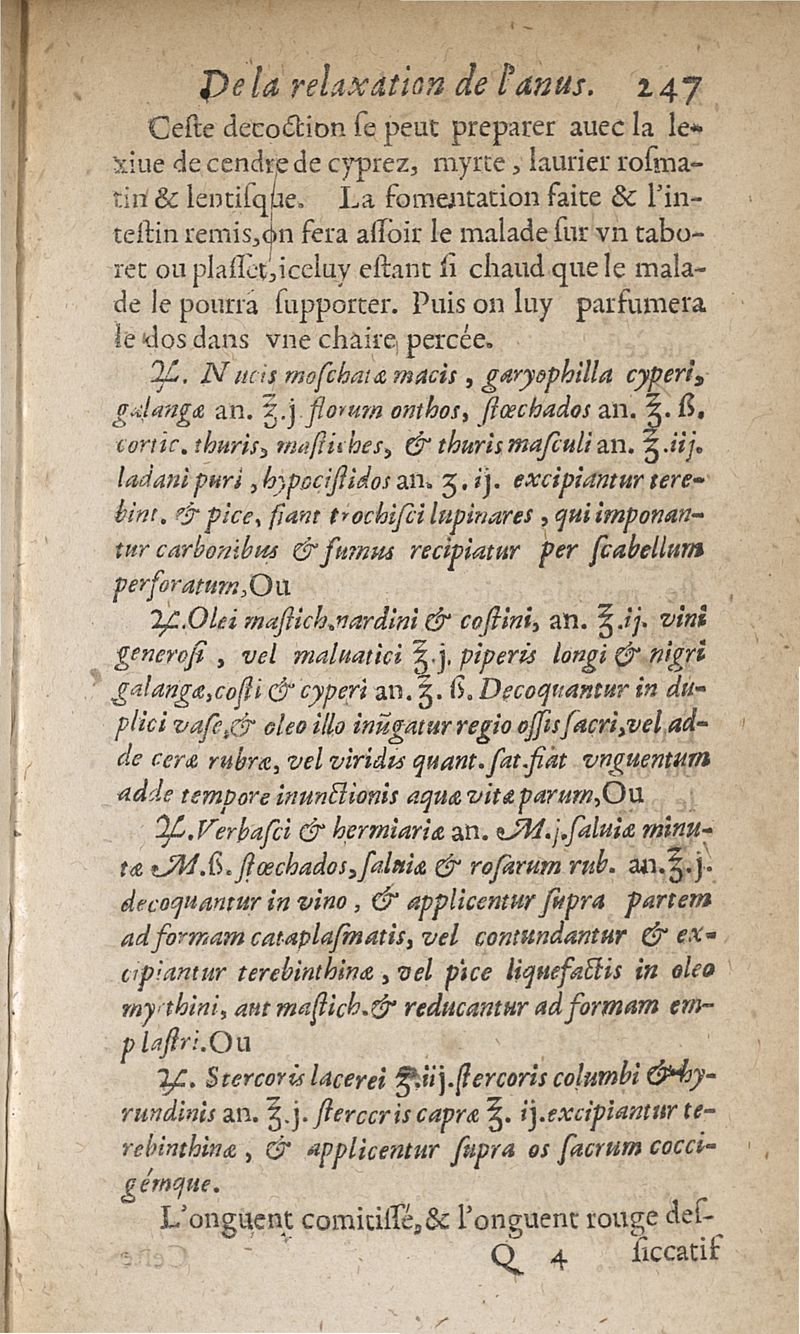 De la relaxation de l'anus. 247
Ceſte decoction ſe peut preparer auec la le-
xiue de cendre de cyprez, myrte, laurier roſma-
rin & lentiſque. La fomentation faite & l'in-
teſtin remis, on fera aſſoir le malade ſur vn tabo-
ret ou plaſſet, iceluy eſtant ſi chaud que le mala-
de le pourra ſupporter. Puis on luy parfumera
le dos dans vne chaire percée.
℞. Nucis moſchatæ macis, garyophilla cyperi,
galangæ an. ℥.j florum onthos, ſtœchados an. ℥. ß.
cortic. thuris, maſtiches, & thuris maſculi an. ℥.iij.
ladani puri, hypociſtidos an. ʒ. ij. excipiantur tere-
bint. & pice, fiant trochiſci lupinares, qui imponan-
tur carbonibus & fumus recipiatur per ſcabellum
perforatum, Ou
℞. Olei maſtich. nardini & coſtini, an. ℥.ij. vini
generoſi, vel maluatici ℥.j. piperis longi & nigri
galangæ, coſti & cyperi an. ℥. ß. Decoquantur in du-
plici vaſe, & oleo illo inũgatur regio oſſis ſacri, vel ad-
de ceræ rubræ, vel viridis quant. ſat. fiat vnguentum
adde tempore inunctionis aquæ vitæ parum, Ou
℞. Verbaſci & hermiariæ an. M.j. ſaluiæ minu-
tæ M.ß. ſtœchados, ſaluiæ & roſarum rub. an. ℥.j.
decoquantur in vino, & applicentur ſupra partem
ad formam cataplaſmatis, vel contundantur & ex-
cipiantur terebinthinæ, vel pice liquefactis in oleo
myrthini, aut maſtich. & reducantur ad formam em-
plaſtri. Ou
℞. Stercoris lacerei ℥.iij. ſtercoris columbi & hy-
rundinis an. ℥.j. ſtercoris capræ ℥. ij. excipiantur te-
rebinthinæ, & applicentur ſupra os ſacrum cocci-
gémque.
L'onguent comitiſſé, & l'onguent rouge deſ-
Q 4 ſiccatif